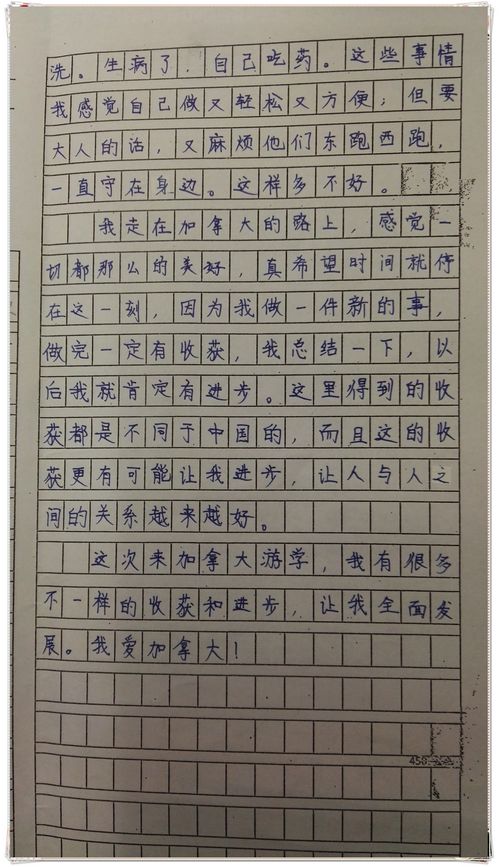 洗。生病了，自己吃药。这些事情
我感觉自己做又轻松又方便；但要
大人的话，又麻烦他们东跑西跑，
一直守在身边。这样多不好。
我走在加拿大的路上，感觉一
切都那么的美好，真希望时间就停
在这一刻，因为我做一件新的事，
做完一定有收获，我总结一下，以
后我就肯定有进步。这里得到的收
获都是不同于中国的，而且这的收
获更有可能让我进步，让人与人之
间的关系越来越好。
这次来加拿大游学，我有很多
不一样的收获和进步，让我全面发
展。我爱加拿大！
450